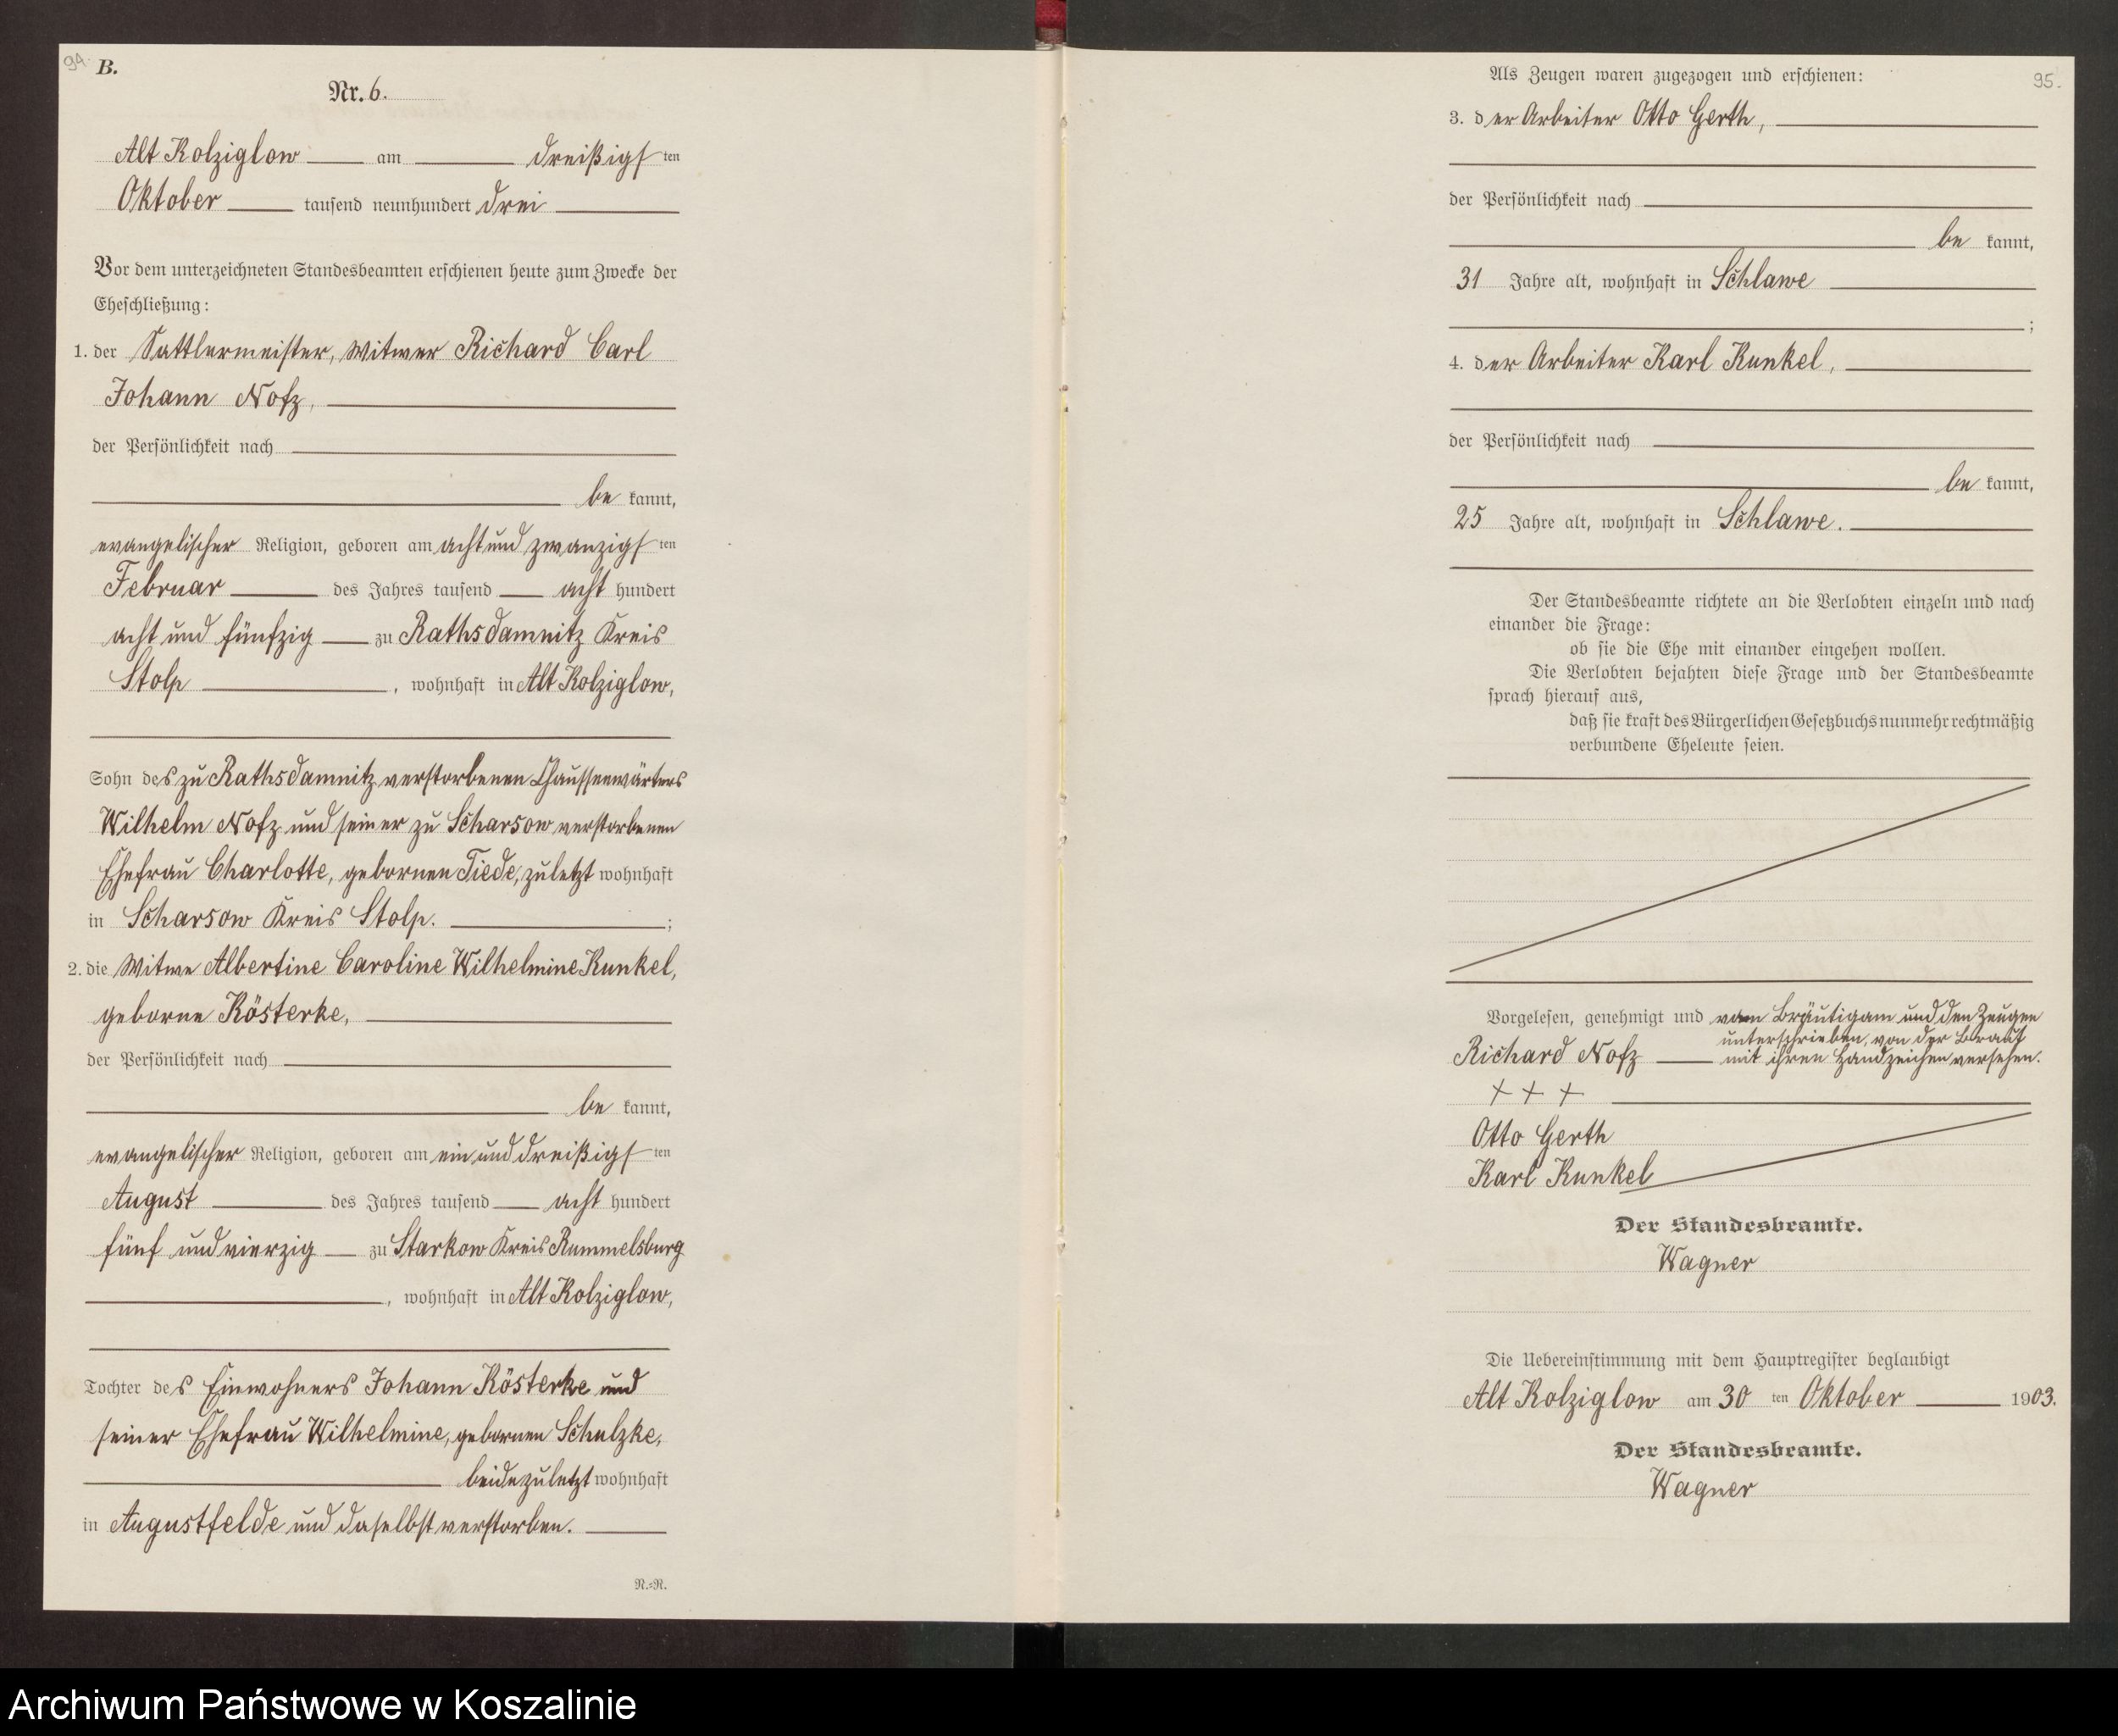 94.
B.
Nr. 6.
Alt Kolziglow am dreißigsten
Oktober tausend neunhundert drei
Vor dem unterzeichneten Standesbeamten erschienen heute zum Zwecke der
Eheschließung:
1. der Sattlermeister, Witwer Richard Carl
Johann Nofz,
der Persönlichkeit nach
be kannt,
evangelischer Religion, geboren am acht und zwanzigsten
Februar des Jahres tausend acht hundert
acht und fünfzig zu Rathsdamnitz Kreis
Stolp, wohnhaft in Alt Kolziglow,
Sohn des zu Rathsdamnitz verstorbenen Chausseewärters
Wilhelm Nofz und seiner zu Scharsow verstorbenen
Ehefrau Charlotte, gebornen Tiede, zuletzt wohnhaft
in Scharsow Kreis Stolp. ;
2. die Witwe Albertine Caroline Wilhelmine Kunkel,
geborne Kösterke,
der Persönlichkeit nach
be kannt,
evangelischer Religion, geboren am ein und dreißigsten
August des Jahres tausend acht hundert
fünf und vierzig zu Starkow Kreis Rummelsburg
, wohnhaft in Alt Kolziglow,
Tochter des Einwohners Johann Kösterke und
seiner Ehefrau Wilhelmine, gebornen Schulzke,
beide zuletzt wohnhaft
in Augustfelde und daselbst verstorben.
R.=R.
95.
Als Zeugen waren zugezogen und erschienen:
3. der Arbeiter Otto Gerth,
der Persönlichkeit nach
be kannt,
31 Jahre alt, wohnhaft in Schlawe
;
4. der Arbeiter Karl Kunkel,
der Persönlichkeit nach
be kannt,
25 Jahre alt, wohnhaft in Schlawe.
Der Standesbeamte richtete an die Verlobten einzeln und nach
einander die Frage:
ob sie die Ehe mit einander eingehen wollen.
Die Verlobten bejahten diese Frage und der Standesbeamte
sprach hierauf aus,
daß sie kraft des Bürgerlichen Gesetzbuchs nunmehr rechtmäßig
verbundene Eheleute seien.
Vorgelesen, genehmigt und vom Bräutigam und den Zeugen
unterschrieben, von der Braut
Richard Nofz mit ihren Handzeichen versehen.
+ + +
Otto Gerth
Karl Kunkel
Der Standesbeamte.
Wagner
Die Uebereinstimmung mit dem Hauptregister beglaubigt
Alt Kolziglow am 30 ten Oktober 1903.
Der Standesbeamte.
Wagner
Archiwum Państwowe w Koszalinie